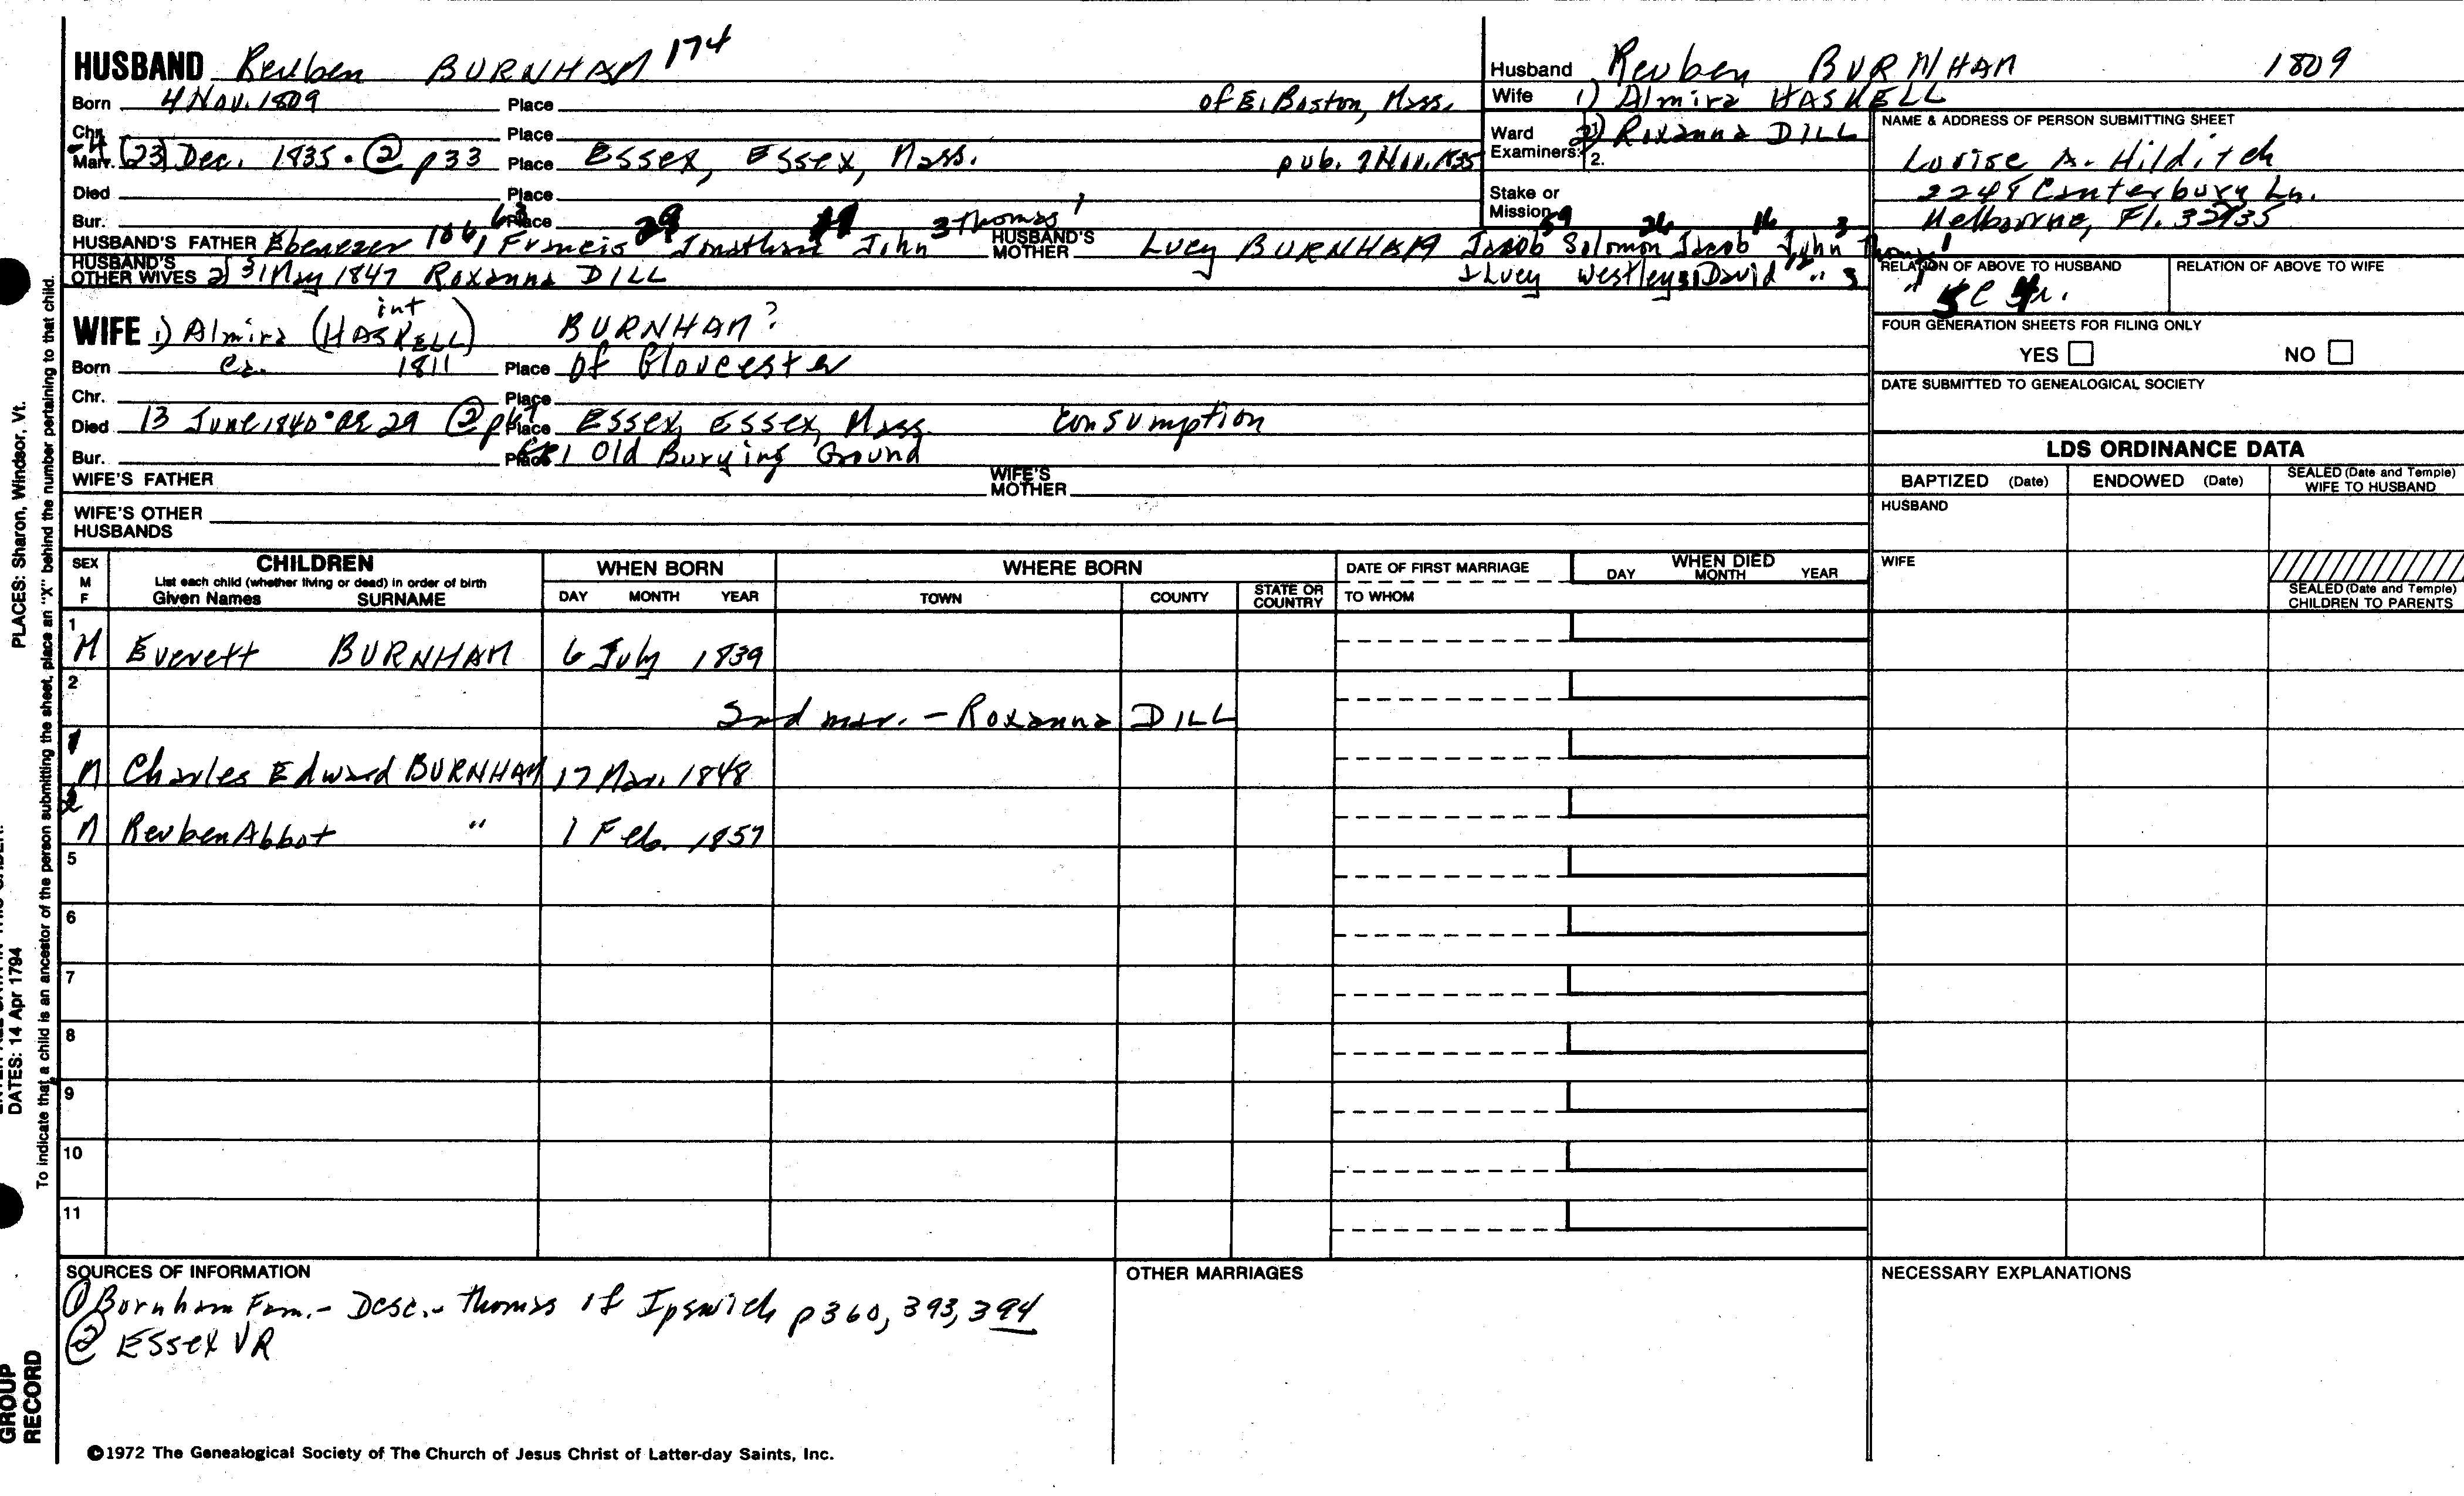 HUSBAND Reuben BURNHAM 174
Born 4 Nov. 1809 Place of E. Boston, Mass.
Chr. Place
Marr. (23) Dec. 1835 • ② p33 Place Essex, Essex, Mass. pub. 7 Nov. 1835
Died Place
Bur. Place
HUSBAND'S FATHER Ebenezer 106 Francis 63 Jonathan 29 John Thomas 1
HUSBAND'S MOTHER Lucy BURNHAM Jacob 59 Solomon 26 Jacob 16 John 3 Thomas 1
HUSBAND'S OTHER WIVES 2) 31 May 1847 Roxanna DILL & Lucy Westley David 12 " 3
WIFE 1) Almira (HASKELL) int BURNHAM?
Born ca. 1811 Place of Gloucester
Chr. Place
Died 13 June 1840 • ae 29 ② Place Essex, Essex, Mass. Consumption
Bur. Place Old Burying Ground
WIFE'S FATHER WIFE'S MOTHER
WIFE'S OTHER HUSBANDS
Husband Reuben BURNHAM 1809
Wife 1) Almira HASKELL
Ward 2) Roxanna DILL
Examiners: 2.
Stake or Mission
NAME & ADDRESS OF PERSON SUBMITTING SHEET
Lorise A. Hilditch
2248 Canterbury Ln.
Melbourne, Fl. 32935
RELATION OF ABOVE TO HUSBAND RELATION OF ABOVE TO WIFE
FOUR GENERATION SHEETS FOR FILING ONLY
YES NO
DATE SUBMITTED TO GENEALOGICAL SOCIETY
LDS ORDINANCE DATA
BAPTIZED (Date) ENDOWED (Date) SEALED (Date and Temple) WIFE TO HUSBAND
HUSBAND
WIFE
SEALED (Date and Temple) CHILDREN TO PARENTS
SEX M F CHILDREN List each child (whether living or dead) in order of birth Given Names SURNAME
WHEN BORN DAY MONTH YEAR
WHERE BORN TOWN COUNTY STATE OR COUNTRY
DATE OF FIRST MARRIAGE TO WHOM
WHEN DIED DAY MONTH YEAR
1 M Everett BURNHAM 6 July 1839
2
2nd mar. - Roxanna DILL
1 M Charles Edward BURNHAM 17 Mar. 1848
2 M Reuben Abbot " 1 Feb. 1857
5
6
7
8
9
10
11
SOURCES OF INFORMATION
① Burnham Fam. - Desc. - Thomas of Ipswich p360, 393, 394
② Essex VR
OTHER MARRIAGES
NECESSARY EXPLANATIONS
©1972 The Genealogical Society of The Church of Jesus Christ of Latter-day Saints, Inc.
PLACES: Sharon, Windsor, Vt.
DATES: 14 Apr 1794
To indicate that a child is an ancestor of the person submitting the sheet, place an "X" behind the number pertaining to that child.
GROUP RECORD